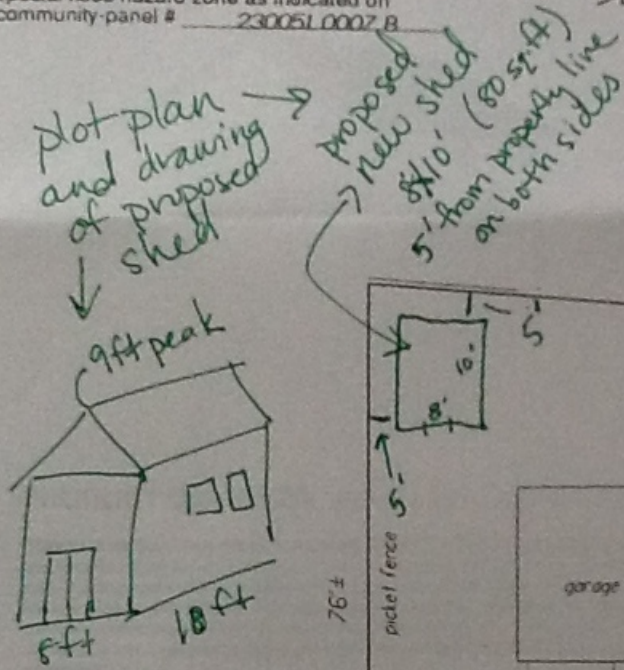 community-panel # 230051 0007 B
plot plan
and drawing
of proposed
shed
proposed
new shed
8'x10' (80 sq.ft)
5' from property line
on both sides
9ft peak
8 ft
10 ft
5'
10'
8'
5'
picket fence
76'±
garage